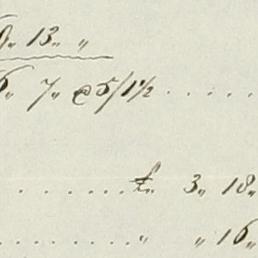 13〃 〃
7〃 @ 5/1½ . . . . .
. . . . . . . £〃 3〃 18〃
. . . . . . . 〃 〃 16〃